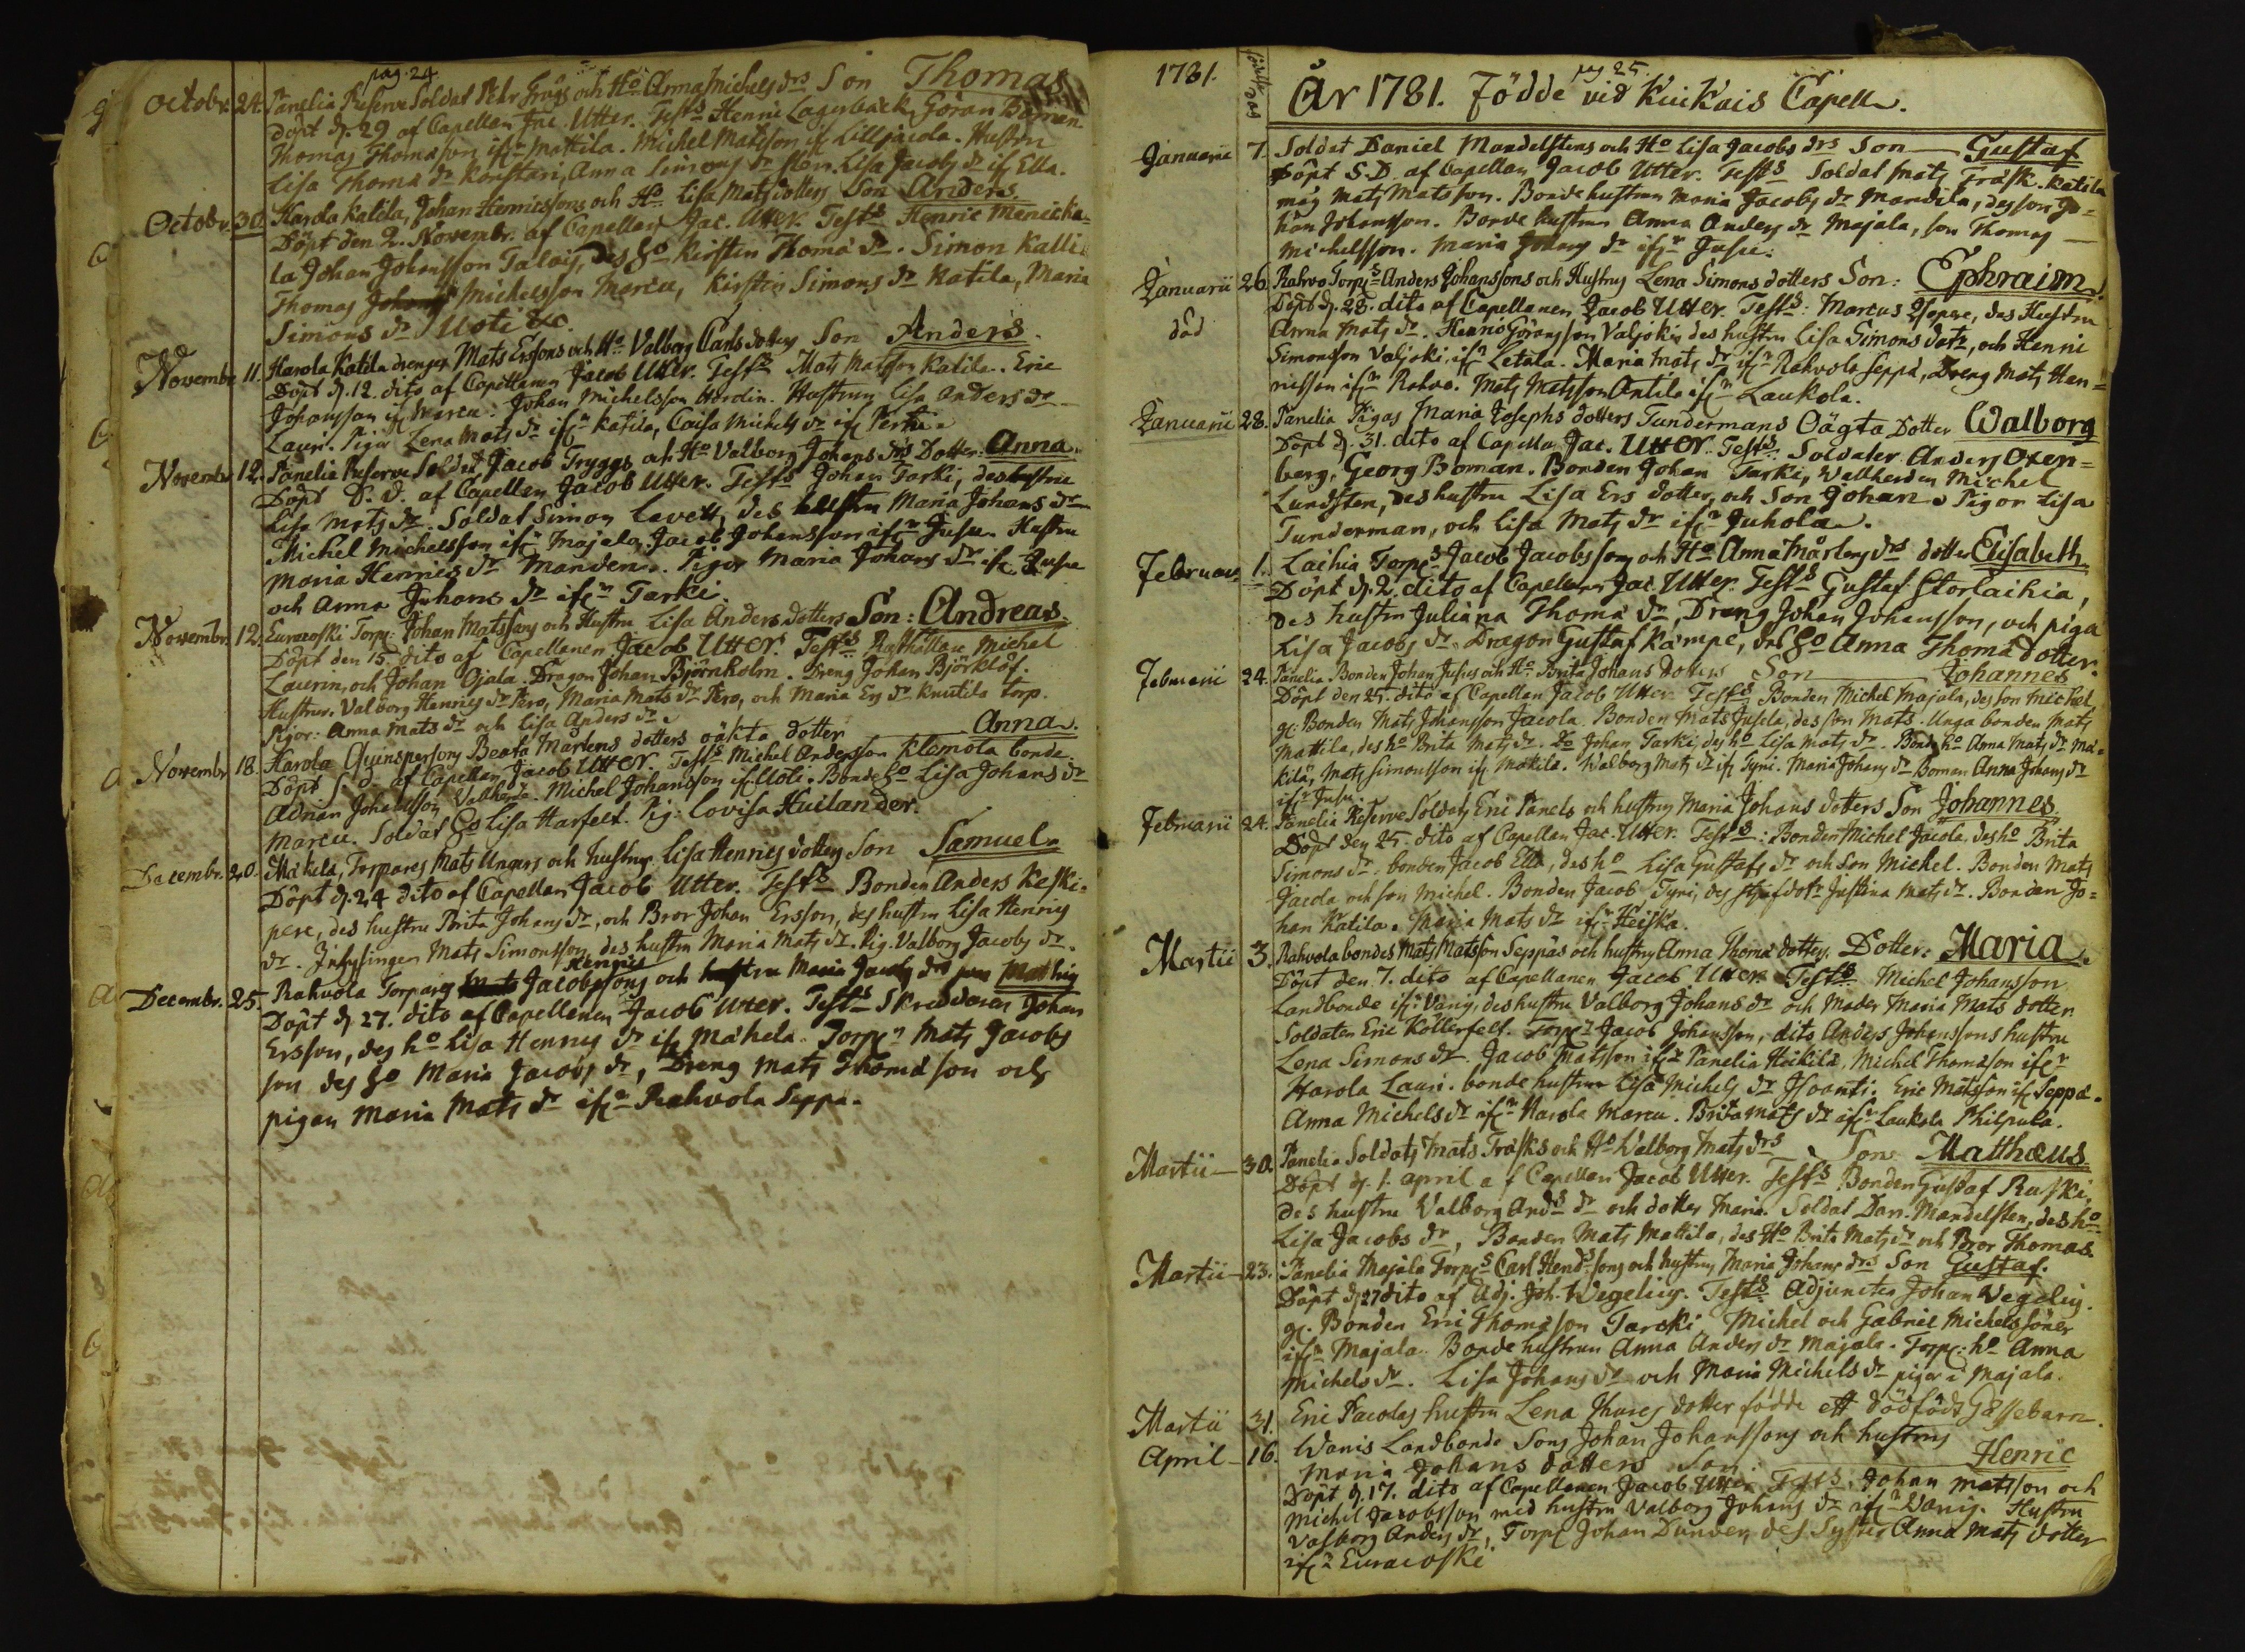 pag. 24
Octobr. 24. Panelia Reserve Soldat Petr Grågs och Ho. Anna Michels drs Son Thomas
Döpt d. 29 af Capellan Jac. Utter. Tests Henric Lagerbäck, Göran Boman
Thomas Thomasson ifrn Mattila. Michel Matsson if Lilljacola. Hustru
Lisa Thoma dr Konstari, Anna Simons dr Lisa Jacobs dr if Ella.
Octobr. 30. Harola Katila, Johan Henricssons och Ho. Lisa Mats dotters Son Anders.
Döpt den 2. Novembr. af Capellan Jac. Utter. Tests Henric Manicka-
la Johan Johansson Talois, des ho Kirstin Thoma dr. Simon Kalli
Thomas Michelsson Marcu, Kirstin Simons dr Katila, Maria
Simons dr Uoti &c.
Novembr. 11. Harola Katila drengs Mats Erssons och Ho Valborg Carls dotters Son Anders.
Döpt d. 12. dito af Capellanen Jacob Utter. Tests Mats Matsson Katila. Eric
Johansson if Marcu. Johan Michelsson Nordin. Hustrun Lisa Anders dr
Lauri. Pigor Lena Mats dr ifrn Katila, Caisa Michels dr if Perttu
Novembr. 12. Panelia Reserve Soldat Jacob Tryggs och Ho Valborg Johans drs Dotter Anna.
Döpt D. d. af Capellan Jacob Utter. Tests Johan Tarki, des hustru
Lisa Mats dr. Soldat Simon Lavett, des hustru Maria Johans dr
Michel Michelsson ifrn Majala, Jacob Johansson ifrn Jusu. Hustru
Maria Henrics dr Manden. Pigor Maria Johans dr if Jusu
och Anna Johans dr ifrn Tarki.
Novembr. 12. Euracoski Torp: Johan Matssons och Hustru Lisa Anders dotters Son: Andreas.
Döpt den 15. dito af Capellanen Jacob Utter. Tests Rusthållare Michel
Laurin, och Johan Ojala. Dragon Johan Björnholm. Dreng Johan Björklöf.
Hustrur. Valborg Henrics dr Pero, Maria Mats dr Pero, och Maria Ers dr Knutila torp.
Pigor: Anna Mats dr och Lisa Anders dr.
Novembr 18. Harola Qvinspersons Beata Mårtens dotters oäkta dotter Anna.
Döpt S. d. af Capellan Jacob Utter. Tests Michel Andersson Klemola bonde
Adrian Johansson Vallherde. Michel Johansson if Uoti. Bonde ho Lisa Johans dr
Marcu. Soldat Ho Lisa Harfelt. Pig: Lovisa Huilander.
Decembr. 20. Mäkelä, Torpares Mats Ungers och hustrus Lisa Henrics dotters Son Samuel.
Döpt d. 24 dito af Capellan Jacob Utter. Tests Bonden Anders Keski-
pere, des hustru Brita Johans dr, och Bror Johan Ersson, des hustru Lisa Henrics
dr. Inhysingen Mats Simonsson, des hustru Maria Mats dr. Pig. Valborg Jacobs dr.
Henrics
Decembr. 25. Rahvola Torpares Jacobssons och hustru Maria Jacobs drs son Mathias
Döpt d. 27. dito af Capellanen Jacob Utter. Tests Skreddaren Johan
Ersson, des ho Lisa Henrics dr if Mäkela. Torp:n Mats Jacobs
son des ho Maria Jacobs dr, Dreng Mats Thomasson och
pigan Maria Mats dr ifrn Rahvola Seppä.
1781.
pag 25.
År 1781. Födde vid Kiukais Capell.
Januarii 7. Soldat Daniel Mandelstens och Ho Lisa Jacobs drs Son Gustaf
Döpt S. D. af Capellan Jacob Utter. Tests Soldat Mats Träsk. Katila
måg Mats Matsson. Bonde hustrun Maria Jacobs dr Mandila, des son Jo-
han Johansson. Bonde hustrun Anna Anders dr Majala, son Thomas
Michelsson. Maria Johans dr ifrn Jusu.
Januarii 26. Rahvo Torps Anders Johanssons och Hustrus Lena Simons dotters Son: Ephraim.
död
Döpt d. 28. dito af Capellanen Jacob Utter. Tests: Marcus Isopere, des Hustru
Anna Mats dr. Henric Göransson Valjoki, des hustru Lisa Simons dotr, och Henric
Simonsson Valjoki, ifn Letala. Maria Mats dr ifrn Rahvola Seppä, Dreng Mats Hen-
ricsson ifrn Rahvo. Mats Matsson Antila ifrn Laukola.
Januarii 28. Panelia Pigas Maria Josephs dotters Tundermans Oägta Dotter Walborg
Döpt d. 31. dito af Capellan Jac. Utter. Tests. Soldater Anders Oxen-
berg, Georg Boman. Bonden Johan Tarki, Wallherden Michel
Lundsten, des hustru Lisa Ers dotter, och Son Johan. Pigor Lisa
Tunderman, och Lisa Mats dr ifrn Juhola.
Februari 1. Laihia Torps Jacob Jacobssons och Ho Anna Mårtens drs dotter Elisabeth
Döpt d. 2. dito af Capellanen Jac. Utter. Tests Gustaf Storlaihia,
des hustru Juliana Thoma dr, Dreng Johan Johansson, och piga
Lisa Jacobs dr. Dragon Gustaf Kämpe, des ho Anna Thoma dotter.
Februarii 24. Panelia Bonden Johan Jusus och Ho Brita Johans dotters Son Johannes
Döpt den 25. dito af Capellan Jacob Utter. Tests Bonden Michel Majala, des son Michel,
gl. Bonden Mats Johansson Jacola. Bonden Mats Jusela, des son Mats. Unga bonden Mats
Mattila, des ho Brita Mats dr. Do Johan Tarki, des ho Lisa Mats dr. Bonde ho Anna Mats dr Mä-
kilä, Mats Simonsson if Mäkilä. Walborg Mats dr if Tyni. Maria Johans dr Boman Anna Johans dr
ifrn Jusu.
Februarii 24. Panelia Reserve Soldats Eric Panels och hustrus Maria Johans dotters Son Johannes
Döpt den 25. dito af Capellan Jac. Utter. Tests: Bonden Michel Jacola. des ho Brita
Simons dr. bonden Jacob Ella, des ho Lisa Gustafs dr och son Michel. Bonden Mats
Jacola och son Michel. Bonden Jacob Tyni, des styfdotr Justina Mats dr. Bonden Jo-
han Katila. Maria Mats dr ifrn Heiska.
Martii 3. Rahvola bondes Mats Matsson Seppäs och hustrus Anna Thoma dotters. Dotter: Maria.
Döpt den 7. dito af Capellanen Jacob Utter. Tests Michel Johansson
Landbonde ifrn Vanis, des hustru Valborg Johans dr och Moder Maria Mats dotter
Soldaten Eric Köllerfelt. Torpr Jacob Johansson, dito Anders Johanssons hustru
Lena Simons dr. Jacob Matsson ifrn Panelia Heikilä, Michel Thomasson ifrn
Harola Lauri. bonde hustrun Lisa Michels dr Isoanti. Eric Matsson if Seppä.
Anna Michels dr ifrn Harola Marcu. Brita Mats dr ifrn Laukola Philpula.
Martii 30. Panelia Soldats Mats Träsks och Ho Walborg Mats drs Son Matthæus
Döpt d. 1. april af Capellan Jacob Utter. Tests Bonden Gustaf Ruski,
des hustru Valborg Ands dr och dotter Maria. Soldat Dan. Mandelsten, des ho
Lisa Jacobs dr, Bonden Mats Mattila, des Ho Brita Mats dr och Bror Thomas.
Martii 23. Panelia Majala Torps Carl Hendssons och hustrus Maria Johans drs Son Gustaf.
Döpt d 27 dito af Adj. Joh. Wegelius. Tests Adjuncten Johan Wegelius.
gl. Bonden Eric Thomasson Tarcki Michel och Gabriel Michelssöner
ifrn Majala. Bonde hustrun Anna Anders dr Majala. Torp: ho Anna
Michels dr. Lisa Johans dr och Maria Michels dr pigor i Majala.
Martii 31. Eric Pacolas hustru Lena Thures dotter födde ett dödfödt Gåssebarn.
April 16. Wanis Landbonde Sons Johan Johanssons och hustrus
Maria Johans dotters Son Henric
Döpt d. 17. dito af Capellanen Jacob Utter Tests. Johan Matsson och
Michel Jacobsson med hustru Valborg Johans dr ifrn Wanis. Hustru
Valborg Anders dr, Torp Johan Dunder, des Syster Anna Mats dotter
ifrn Euracoski